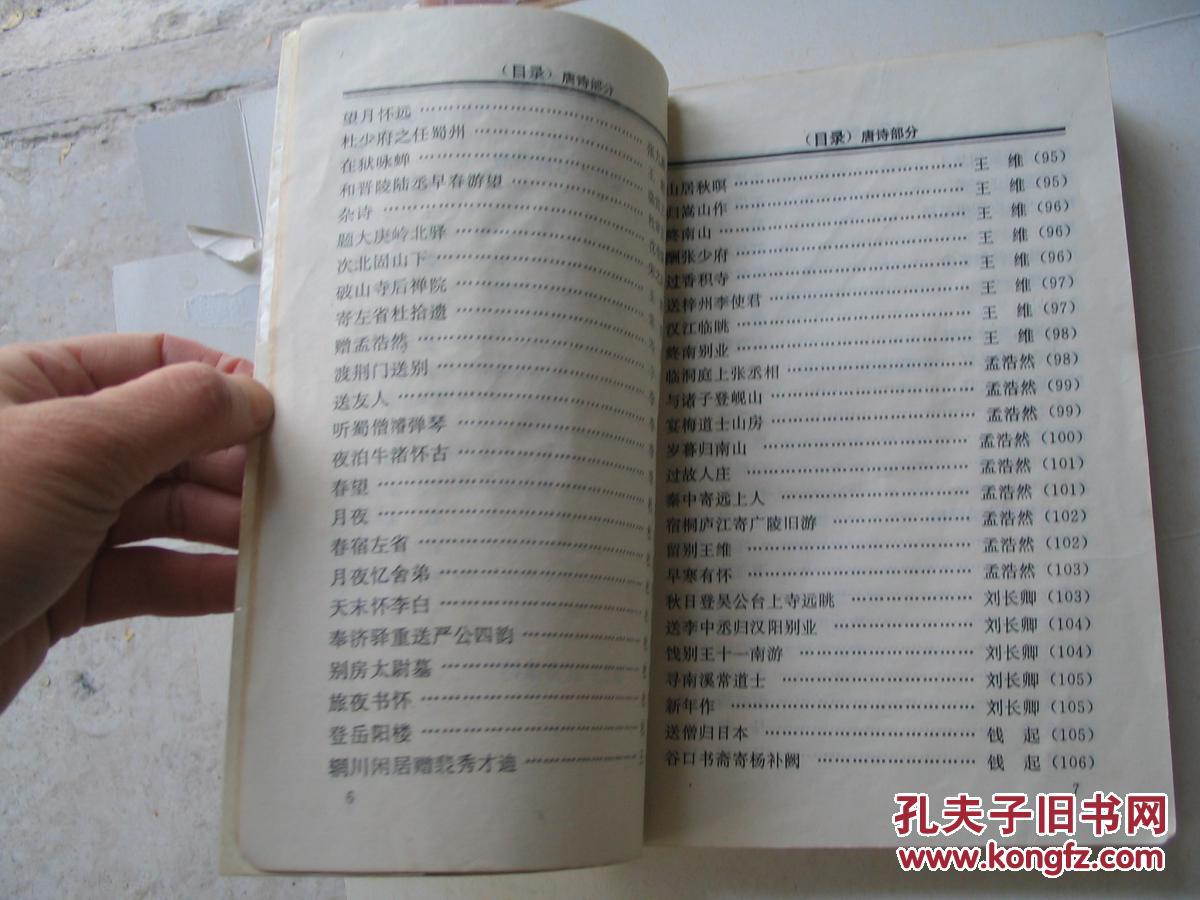 (目录) 唐诗部分
望月怀远 ……………………
杜少府之任蜀州 ……………………
在狱咏蝉 ……………………
和晋陵陆丞早春游望 ……………………
杂诗 ……………………
题大庾岭北驿 ……………………
次北固山下 ……………………
破山寺后禅院 ……………………
寄左省杜拾遗 ……………………
赠孟浩然 ……………………
渡荆门送别 ……………………
送友人 ……………………
听蜀僧濬弹琴 ……………………
夜泊牛渚怀古 ……………………
春望 ……………………
月夜 ……………………
春宿左省 ……………………
月夜忆舍弟 ……………………
天末怀李白 ……………………
奉济驿重送严公四韵 ……………………
别房太尉墓 ……………………
旅夜书怀 ……………………
登岳阳楼 ……………………
辋川闲居赠裴秀才迪 ……………………
6
(目录) 唐诗部分
山居秋暝 …………………… 王 维 (95)
归嵩山作 …………………… 王 维 (95)
终南山 …………………… 王 维 (96)
酬张少府 …………………… 王 维 (96)
过香积寺 …………………… 王 维 (96)
送梓州李使君 …………………… 王 维 (97)
汉江临眺 …………………… 王 维 (97)
终南别业 …………………… 王 维 (98)
临洞庭上张丞相 …………………… 孟浩然 (98)
与诸子登岘山 …………………… 孟浩然 (99)
宴梅道士山房 …………………… 孟浩然 (99)
岁暮归南山 …………………… 孟浩然 (100)
过故人庄 …………………… 孟浩然 (101)
秦中寄远上人 …………………… 孟浩然 (101)
宿桐庐江寄广陵旧游 …………………… 孟浩然 (102)
留别王维 …………………… 孟浩然 (102)
早寒有怀 …………………… 孟浩然 (103)
秋日登吴公台上寺远眺 …………………… 刘长卿 (103)
送李中丞归汉阳别业 …………………… 刘长卿 (104)
饯别王十一南游 …………………… 刘长卿 (104)
寻南溪常道士 …………………… 刘长卿 (105)
新年作 …………………… 刘长卿 (105)
送僧归日本 …………………… 钱 起 (105)
谷口书斋寄杨补阙 …………………… 钱 起 (106)
7
孔夫子旧书网
www.kongfz.com